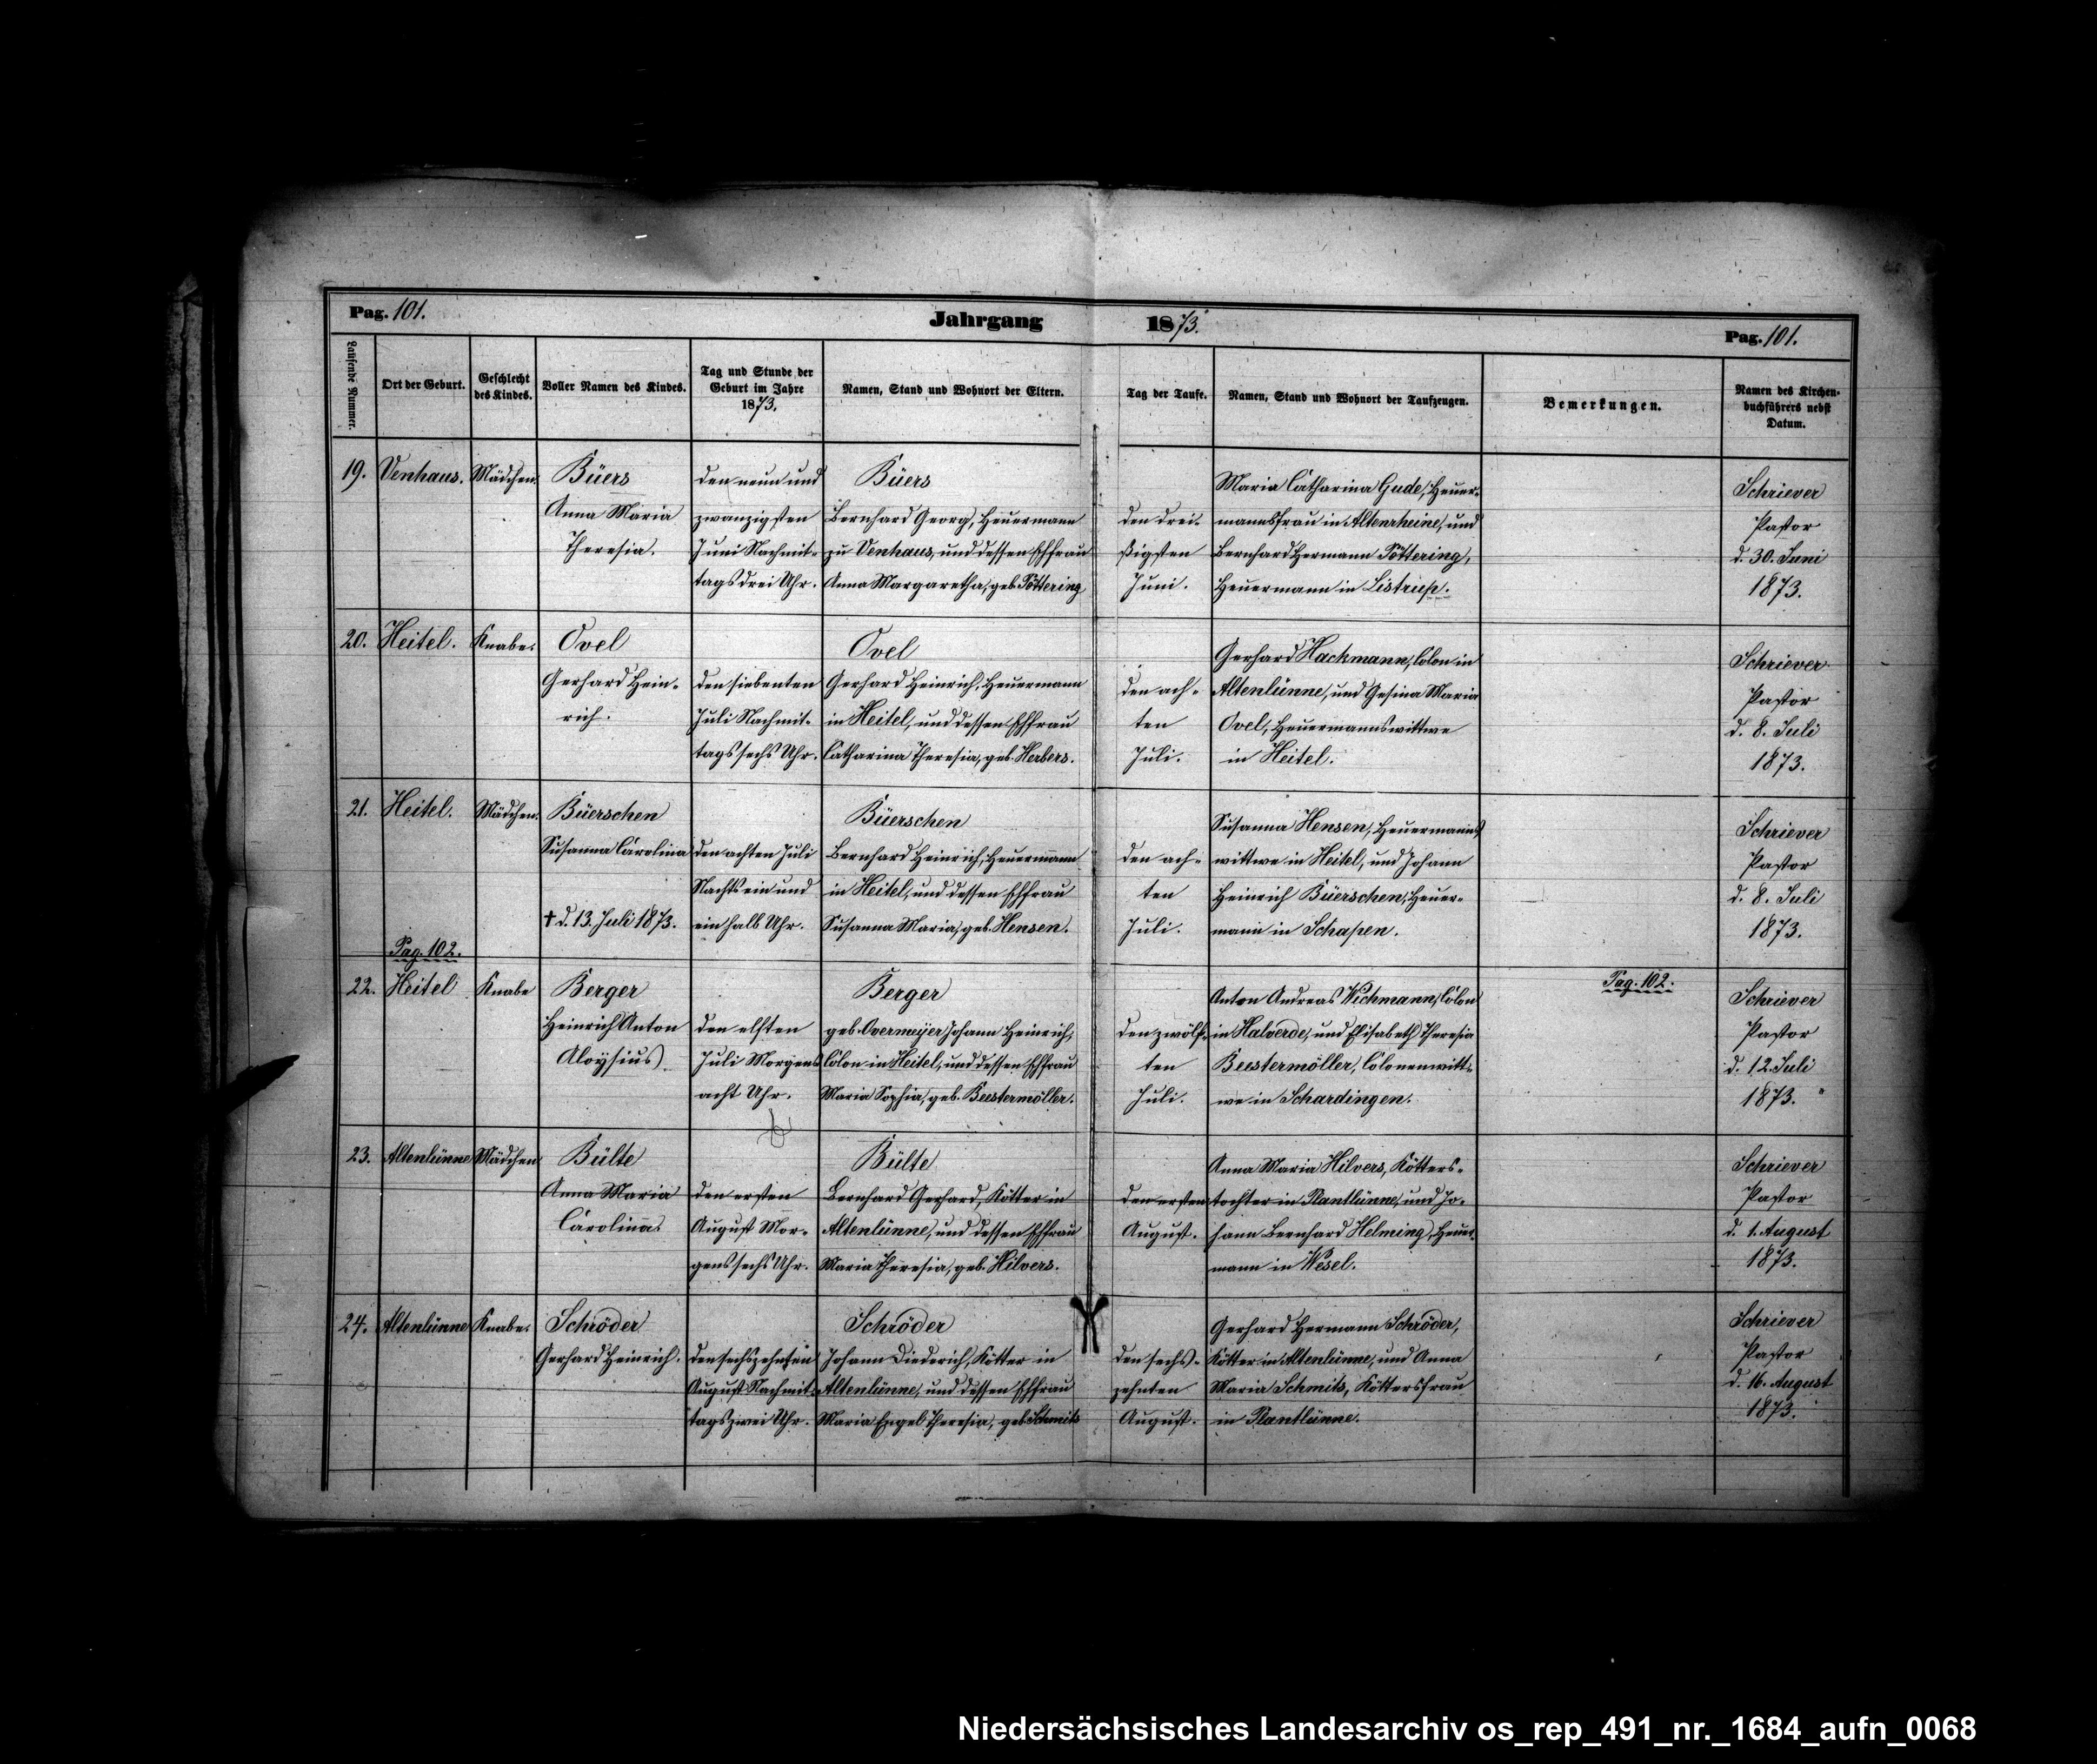 Pag. 101.
Jahrgang 1873.
Pag. 101.
Laufende Nummer.
Ort der Geburt.
Geschlecht
des Kindes.
Voller Namen des Kindes.
Tag und Stunde der
Geburt im Jahre
1873.
Namen, Stand und Wohnort der Eltern.
Tag der Taufe.
Namen, Stand und Wohnort der Taufzeugen.
Bemerkungen.
Namen des Kirchen-
buchführers nebst
Datum.
19.
Venhaus.
Mädchen.
Büers
Anna Maria
Theresia.
den neun und
zwanzigsten
Juni Nachmit-
tags drei Uhr.
Büers
Bernhard Georg, Heuermann
zu Venhaus, und dessen Ehfrau
Anna Margaretha, geb. Pöttering
den drei-
ßigsten
Juni.
Maria Catharina Gude, Heuer-
mannsfrau in Altenrheine, und
Bernhard Hermann Pöttering,
Heuermann in Listrup.
Schriever
Pastor
d. 30. Juni
1873.
20.
Heitel.
Knabe.
Ovel
Gerhard Hein-
rich.
den siebenten
Juli Nachmit-
tags sechs Uhr.
Ovel
Gerhard Heinrich, Heuermann
in Heitel, und dessen Ehfrau
Catharina Theresia, geb. Herbers.
den ach-
ten
Juli.
Gerhard Hackmann, Colon in
Altenlünne, und Gesina Maria
Ovel, Heuermannswittwe
in Heitel.
Schriever
Pastor
d. 8. Juli
1873.
21.
Heitel.
Mädchen.
Büerschen
Susanna Carolina
† d. 13. Juli 1873.
den achten Juli
Nachts ein und
ein halb Uhr.
Büerschen
Bernhard Heinrich, Heuermann
in Heitel, und dessen Ehfrau
Susanna Maria, geb. Hensen.
den ach-
ten
Juli.
Susanna Hensen, Heuermanns
wittwe in Heitel, und Johann
Heinrich Büerschen, Heuer-
mann in Schapen.
Schriever
Pastor
d. 8. Juli
1873.
Pag. 102.
22.
Heitel
Knabe
Berger
Heinrich Anton
Aloysius
den elften
Juli Morgens
acht Uhr.
Berger
geb. Overmeyer Johann Heinrich,
Colon in Heitel, und dessen Ehfrau
Maria Sophia, geb. Beestermöller.
den zwölf-
ten
Juli.
Anton Andreas Wichmann, Colon
in Halverde, und Elisabeth Theresia
Beestermöller, Colonenwitt-
we in Schardingen.
Pag. 102.
Schriever
Pastor
d. 12. Juli
1873.
23.
Altenlünne
Mädchen
Bülte
Anna Maria
Carolina
den ersten
August Mor-
gens sechs Uhr.
Bülte
Bernhard Gerhard, Kötter in
Altenlünne, und dessen Ehfrau
Maria Theresia, geb. Hilvers.
den ersten
August.
Anna Maria Hilvers, Kötters-
tochter in Plantlünne, und Jo-
hann Bernhard Helming, Heuer-
mann in Wesel.
Schriever
Pastor
d. 1. August
1873.
24.
Altenlünne
Knabe.
Schröder
Gerhard Heinrich.
den sechszehnten
August Nachmit-
tags zwei Uhr.
Schröder
Johann Diederich, Kötter in
Altenlünne, und dessen Ehfrau
Maria Engel Theresia, geb. Schmits
den sechs-
zehnten
August.
Gerhard Hermann Schröder,
Kötter in Altenlünne, und Anna
Maria Schmits, Köttersfrau
in Plantlünne.
Schriever
Pastor
d. 16. August
1873.
Niedersächsisches Landesarchiv os_rep_491_nr._1684_aufn_0068